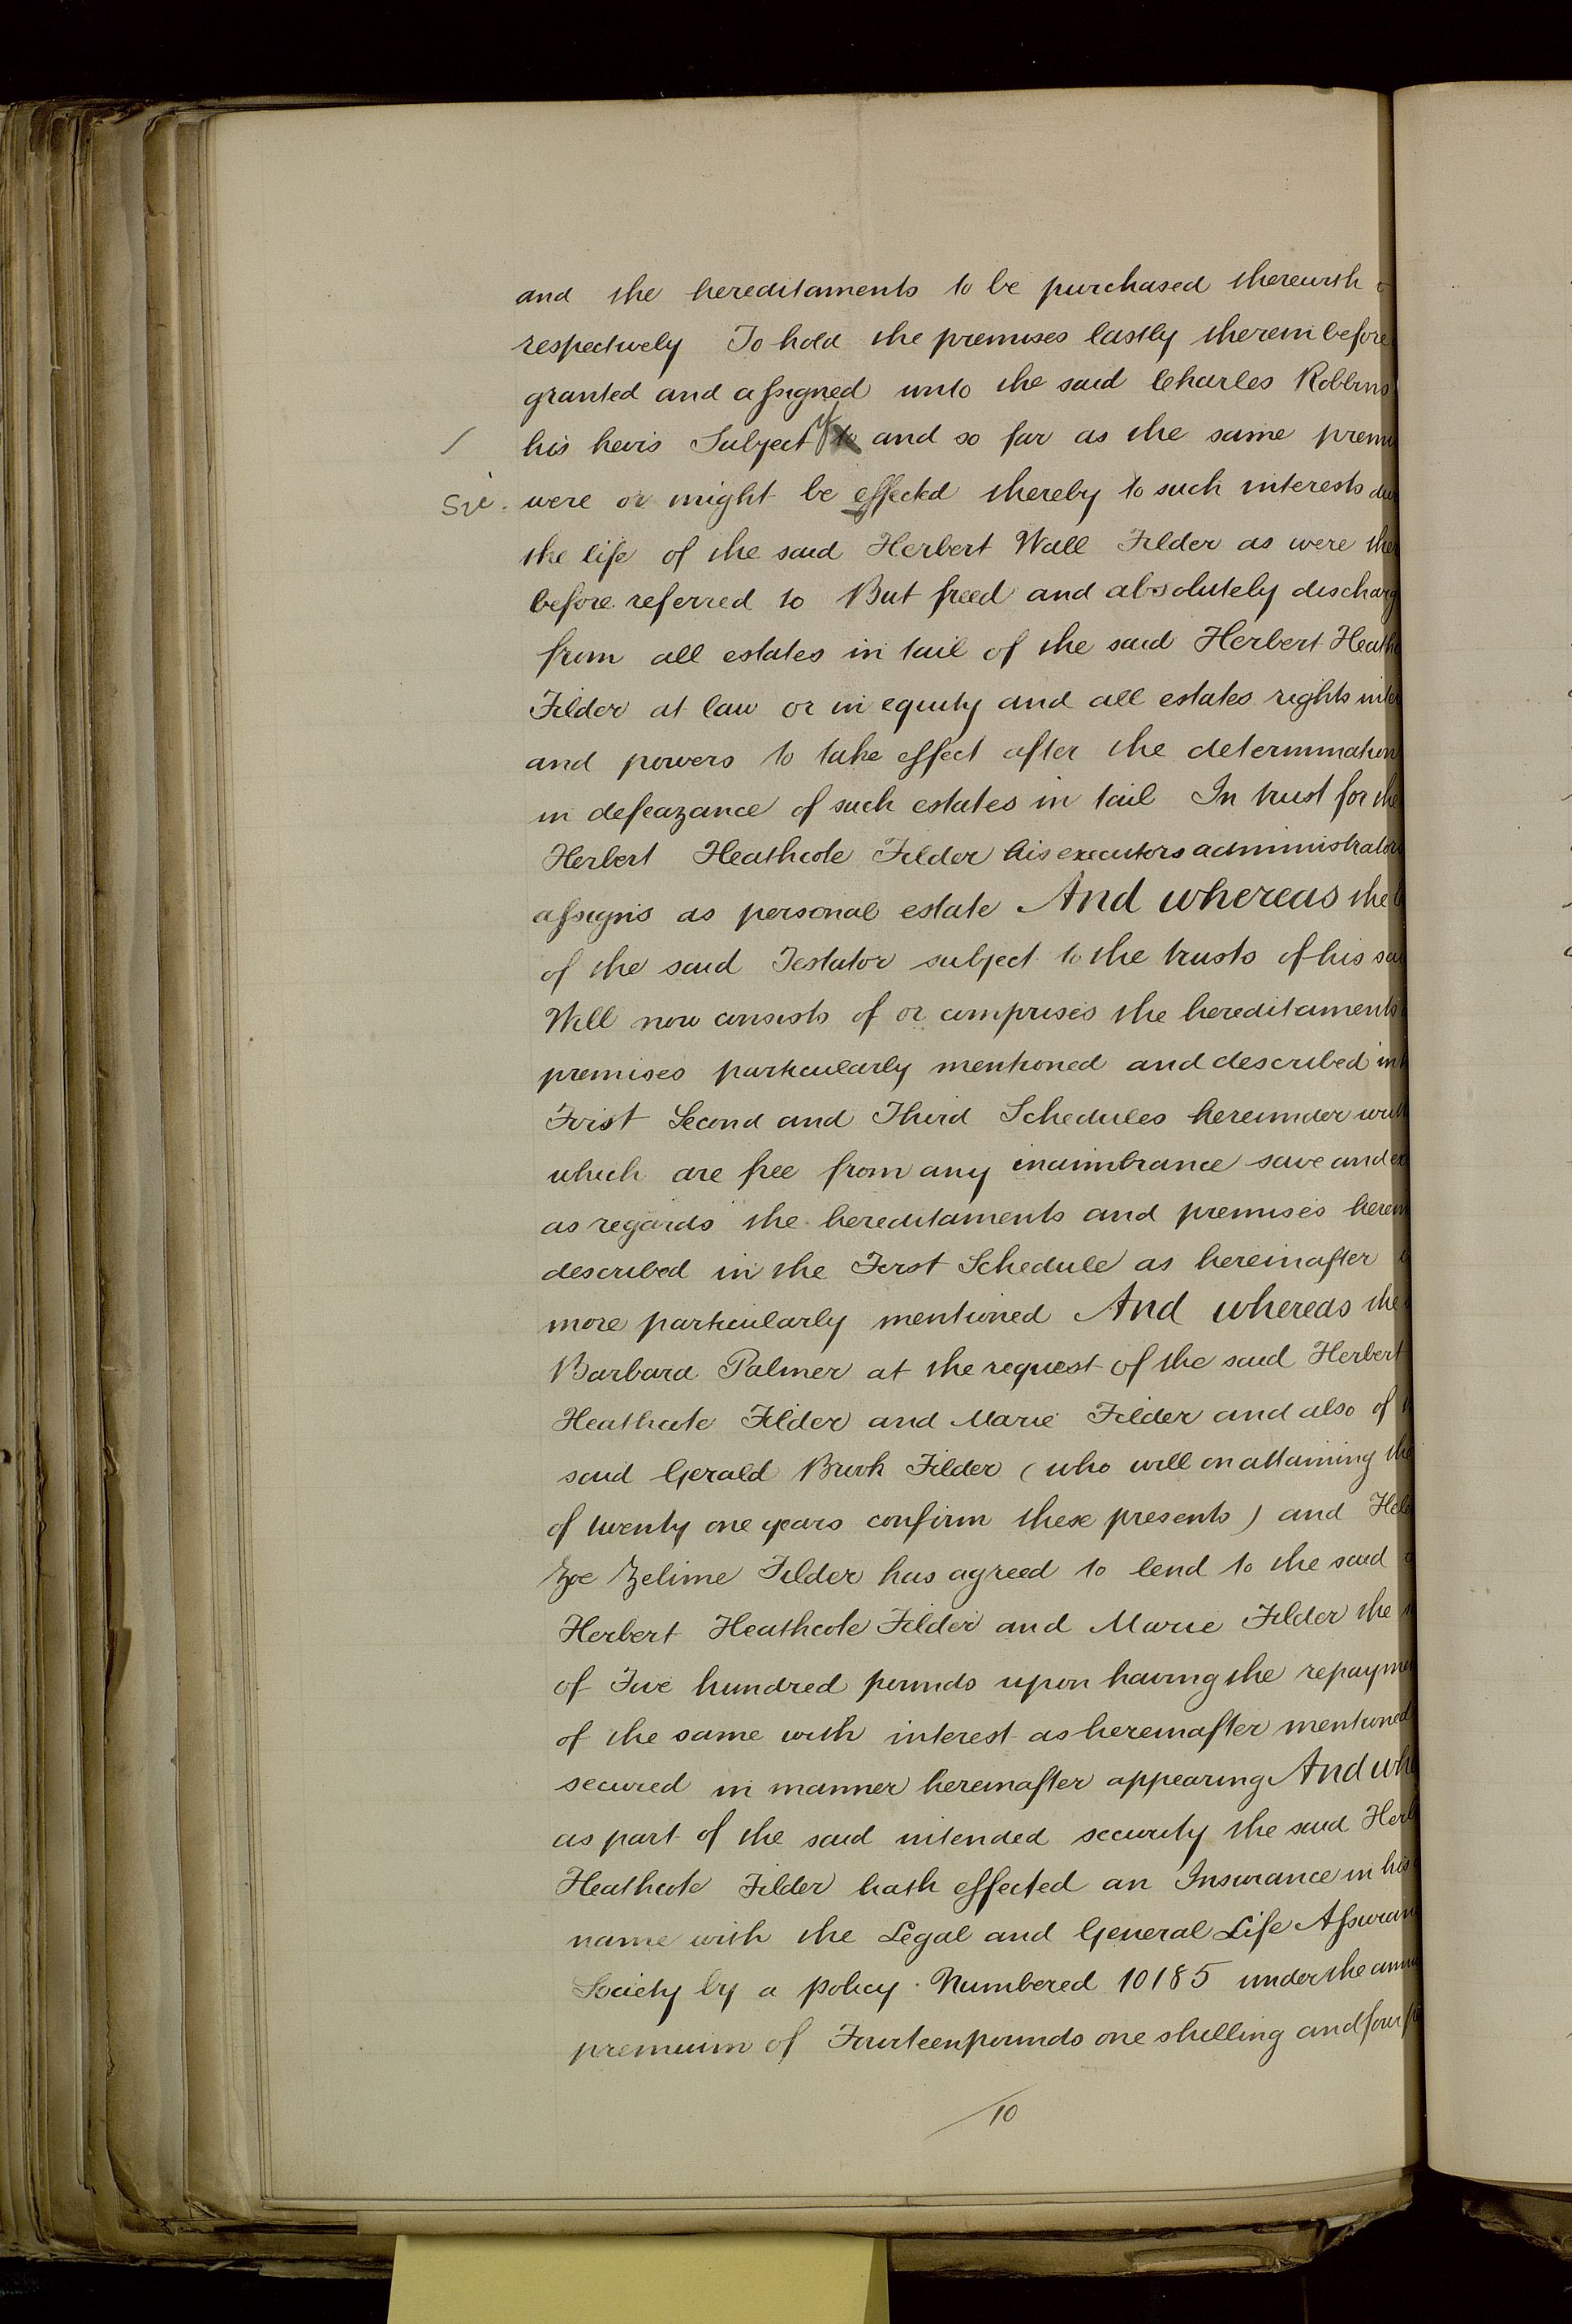 and the hereditaments to be purchased therewith
respectively To hold the premises lastly therein before
granted and assigned unto the said Charles Robbins
his heirs Subject to and so far as the same premi
Sic. were or might be effected thereby to such interests du
the life of the said Herbert Wall Filder as were ther
before referred to But freed and absolutely discharg
from all estates in tail of the said Herbert Heathc
Filder at law or in equity and all estates rights inter
and powers to take effect after the determination
in defeazance of such estates in tail In trust for the
Herbert Heathcote Filder his executors administrators
assigns as personal estate And whereas the
of the said Testator subject to the trusts of his sai
Will now consists of or comprises the hereditaments
premises particularly mentioned and described in
First Second and Third Schedules hereunder writt
which are free from any incumbrance save and ex
as regards the hereditaments and premises herein
described in the First Schedule as hereinafter
more particularly mentioned And whereas the
Barbara Palmer at the request of the said Herbert
Heathcote Filder and Marie Filder and also of
said Gerald Brook Filder (who will on attaining the
of twenty one years confirm these presents) and Hele
Zoe Zelime Filder has agreed to lend to the said
Herbert Heathcote Filder and Marie Filder the
of Five hundred pounds upon having the repaymen
of the same with interest as hereinafter mentioned
secured in manner hereinafter appearing And whe
as part of the said intended security the said Herb
Heathcote Filder hath effected an Insurance in his
name with the Legal and General Life Assuran
Society by a policy Numbered 10185 under the annu
premium of Fourteen pounds one shilling and four
10